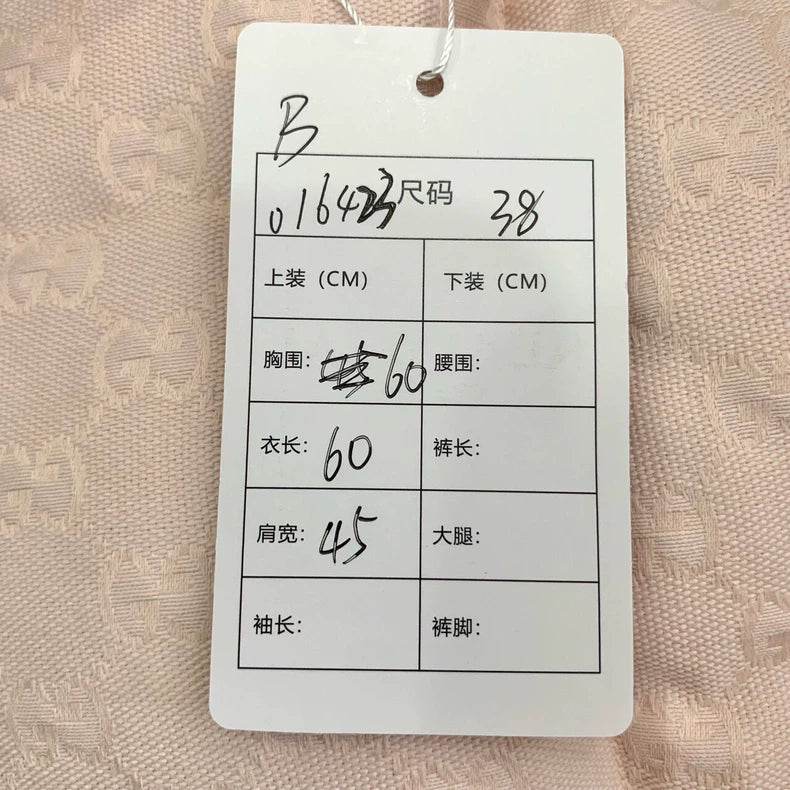 B
016423 尺码 38
上装（CM） 下装（CM）
胸围： 60 腰围：
衣长： 60 裤长：
肩宽： 45 大腿：
袖长： 裤脚：